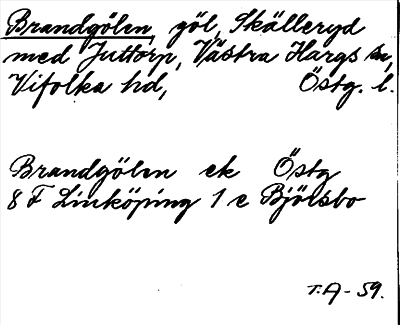 Brandgölen, göl, Skälleryd
med Juttorp, Västra Hargs sn,
Vifolka hd, Östg. l.
Brandgölen ek Östg
8 F Linköping 1 e Bjölsbo
T.A - 59.